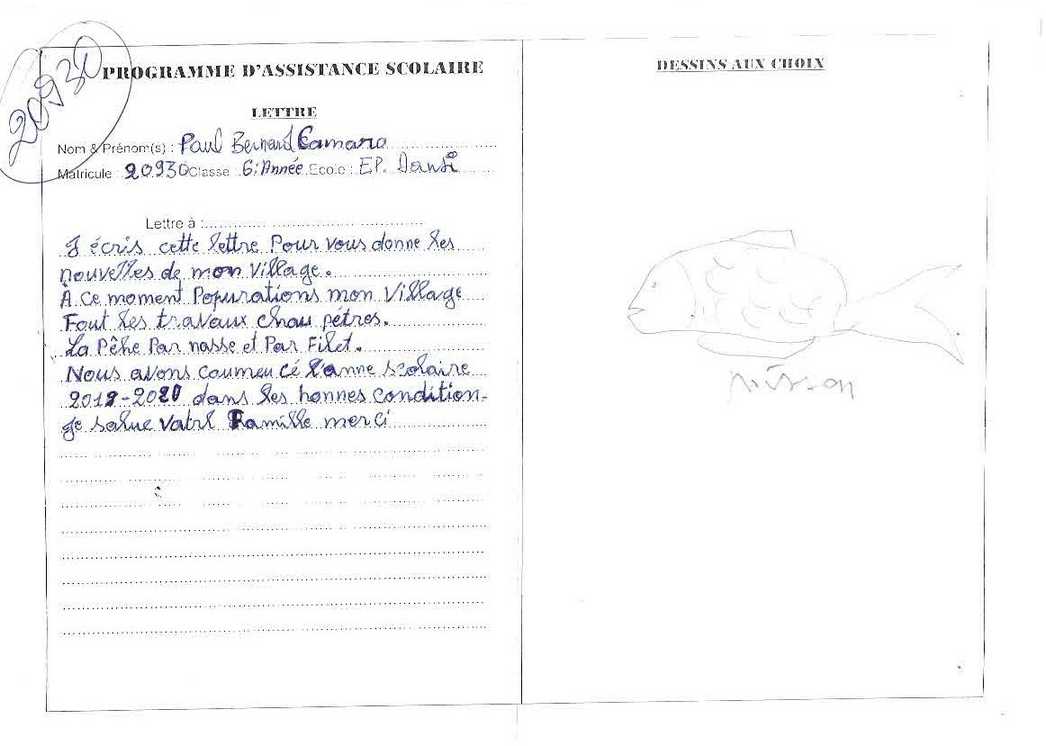 20930
PROGRAMME D'ASSISTANCE SCOLAIRE
LETTRE
Nom & Prénom(s) : Paul Bernard Camara
Matricule 20930 Classe : 6: Année Ecole : EP. Dansi
Lettre à :
J écris cette lettre Pour vous donne les
nouvelles de mon Village.
A ce moment Popurations mon Village
Font les travaux chau pétres.
La Pêhe Par nasse et Par Filet.
Nous avons coumen cé l'anne scolaire
2019-2020 dans les honnes condition-
je salue vatrl Famille merci
DESSINS AUX CHOIX